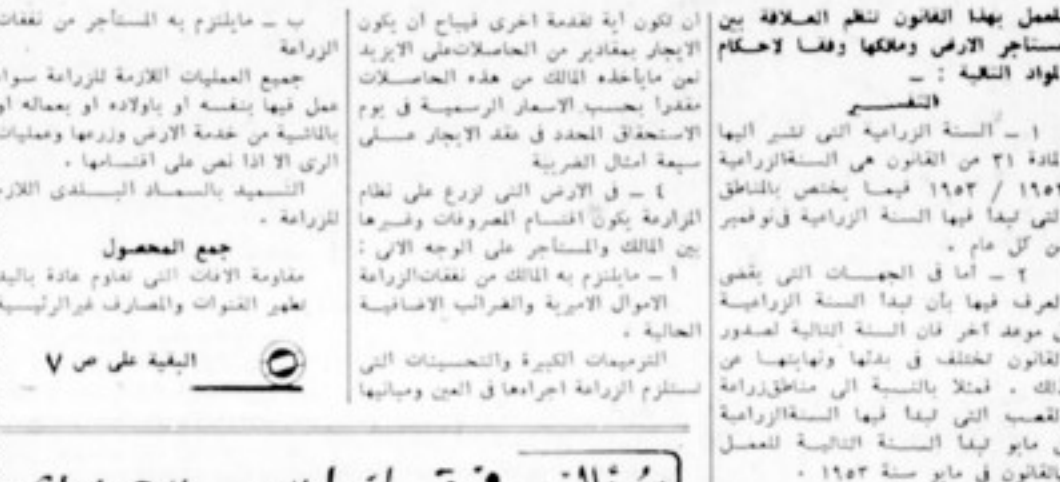 العمل بهذا القانون تنظم العلاقة بين
مستأجر الارض ومالكها وفقا لاحكام
المواد التالية : ـ
التفسير
١ ـ السنة الزراعية التى تشير اليها
المادة ٣١ من القانون هى السنةالزراعية
١٩٥٢ / ١٩٥٣ فيما يختص بالمناطق
التى تبدأ فيها السنة الزراعية فىنوفمبر
من كل عام .
٢ ـ أما فى الجهات التى يقضى
العرف فيها بأن تبدأ السنة الزراعية
فى موعد آخر فان السنة التالية لصدور
القانون تختلف فى بدئها ونهايتها عن
ذلك . فمثلا بالنسبة الى مناطقزراعة
القصب التى تبدأ فيها السنةالزراعية
فى مايو تبدأ السنة التالية للعمل
بالقانون فى مايو سنة ١٩٥٣ .
ان تكون أية تقدمة أخرى فيباح ان يكون
الايجار بمقادير من الحاصلاتعلى الايزيد
ثمن مايأخذه المالك من هذه الحاصلات
مقدرا بحسب الاسعار الرسمية فى يوم
الاستحقاق المحدد فى عقد الايجار على
سبعة أمثال الضريبة
٤ ـ فى الارض التى تزرع على نظام
المزارعة يكون اقتسام المصروفات وغيرها
بين المالك والمستأجر على الوجه الاتى :
أ ـ مايلتزم به المالك من نفقاتالزراعة
الاموال الاميرية والضرائب الاضافية
الحالية .
الترميمات الكبيرة والتحسينات التى
تستلزم الزراعة اجراءها فى العين ومبانيها
ب ـ مايلتزم به المستأجر من نفقات
الزراعة
جميع العمليات اللازمة للزراعة سواء
عمل فيها بنفسه او باولاده او بعماله او
بالماشية من خدمة الارض وزرعها وعمليات
الرى الا اذا نص على اقتسامها .
التسميد بالسماد البلدى اللازم
للزراعة .
جمع المحصول
مقاومة الافات التى تقاوم عادة باليد
تطهير القنوات والمصارف غيرالرئيسية
البقية على ص ٧